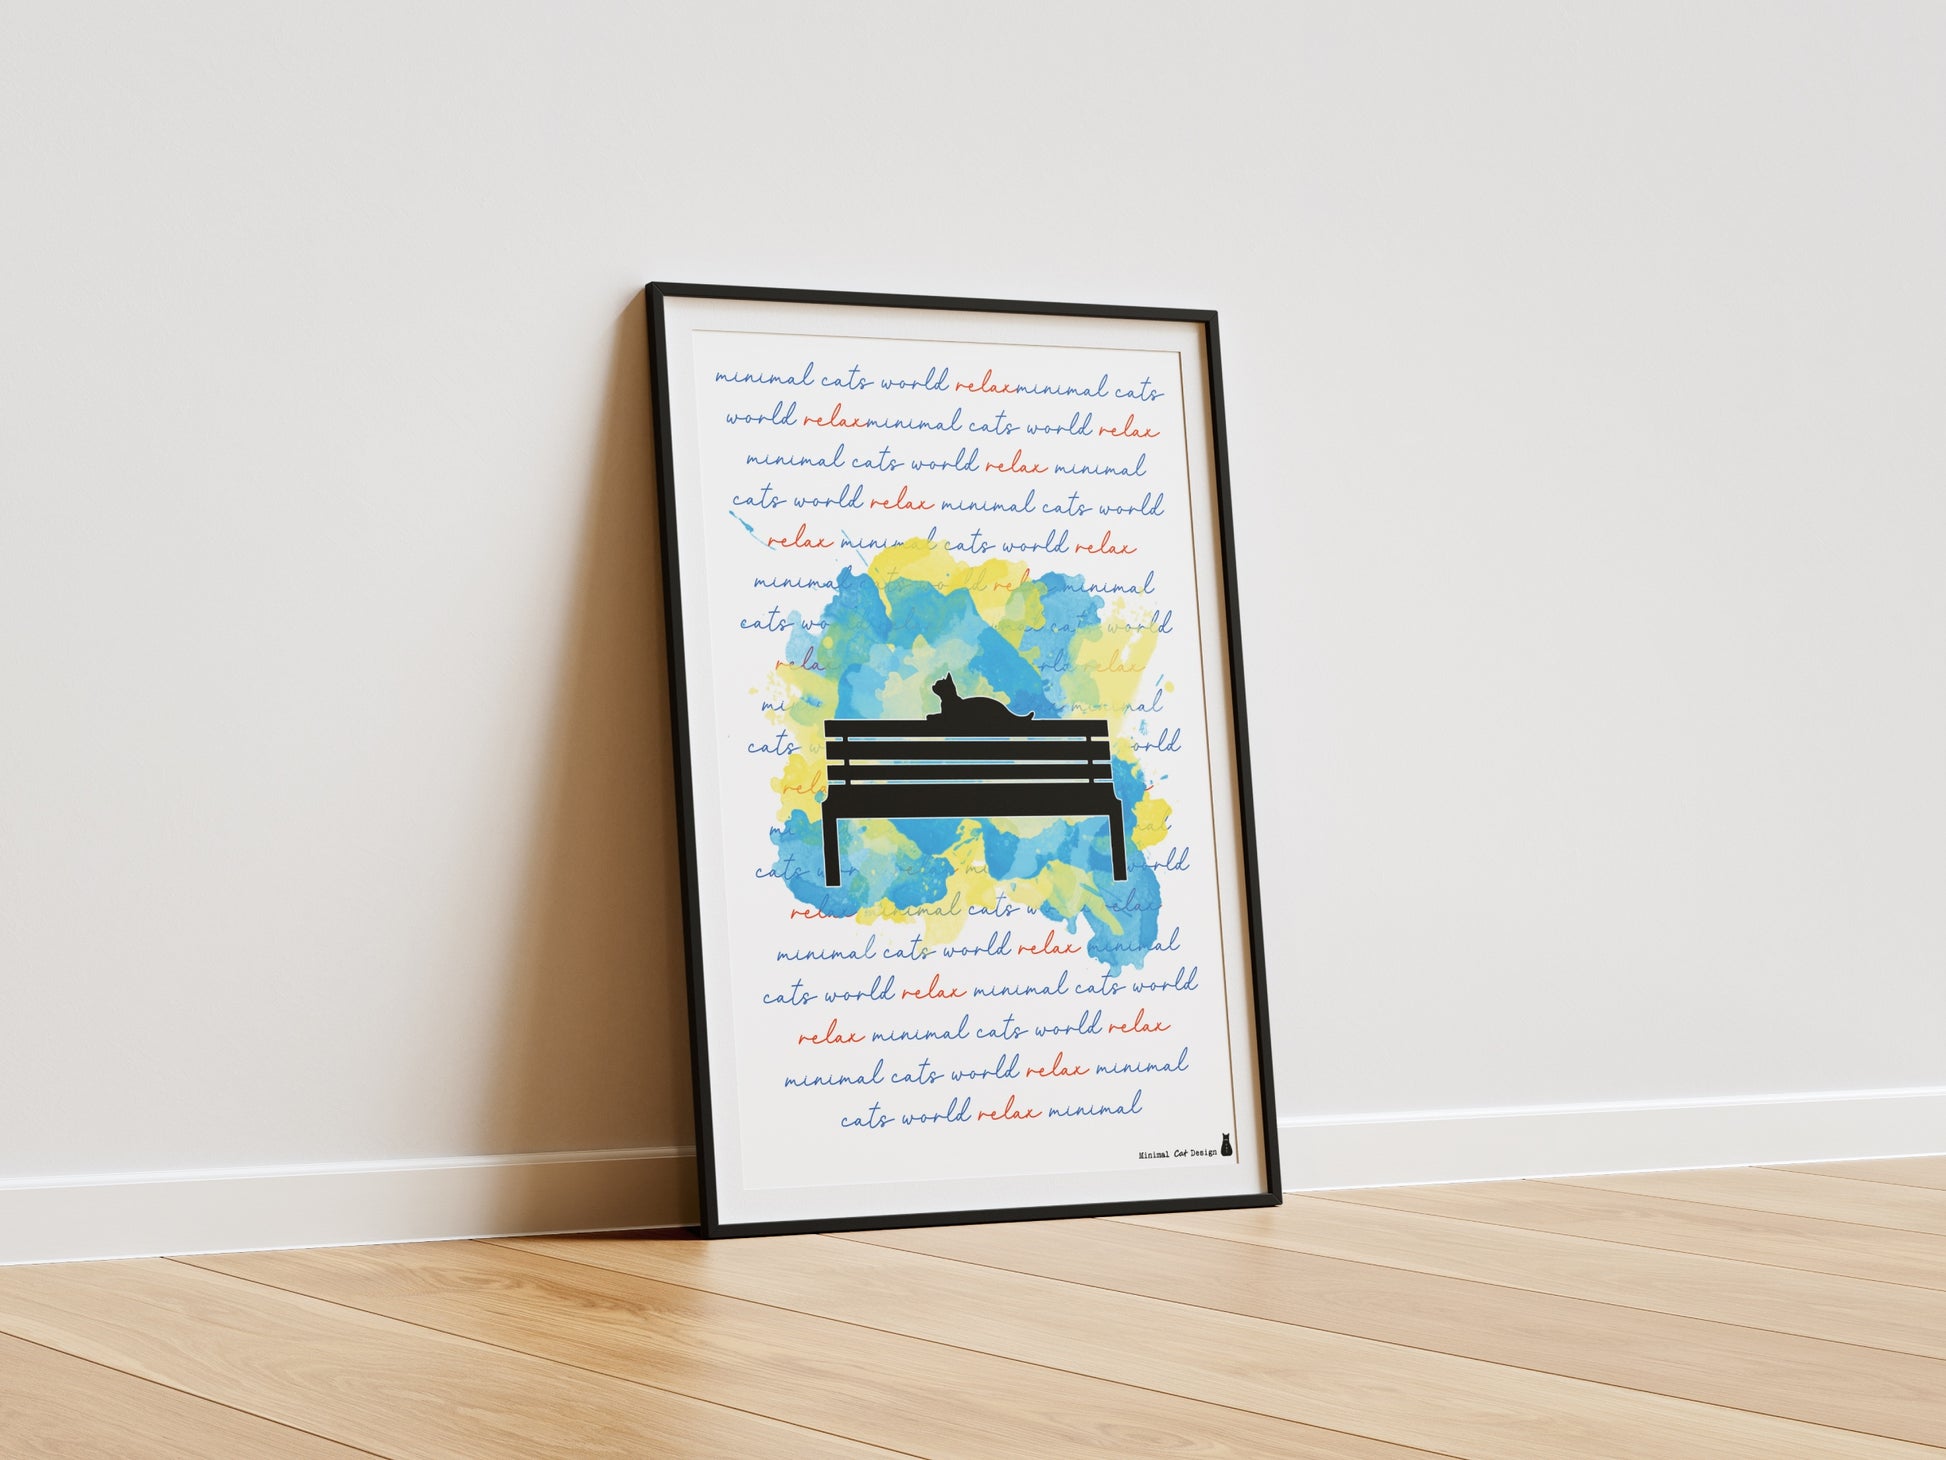 minimal cats world relaxminimal cats
world relaxminimal cats world relax
minimal cats world relax minimal
cats world relax minimal cats world
relax minimal cats world relax
minimal cats world relax minimal
cats cats world
relax world relax
minimal
cats world
cats world
relax minimal cats relax
minimal cats world relax minimal
cats world relax minimal cats world
relax minimal cats world relax
minimal cats world relax minimal
cats world relax minimal
Minimal Cat Design